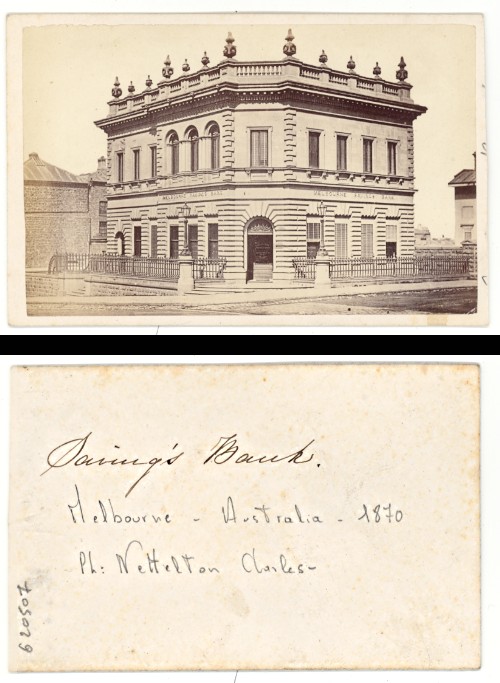 MELBOURNE SAVINGS BANK
MELBOURNE SAVINGS BANK
Saving's Bank.
Melbourne - Australia - 1870
Ph: Nettelton Charles-
620507